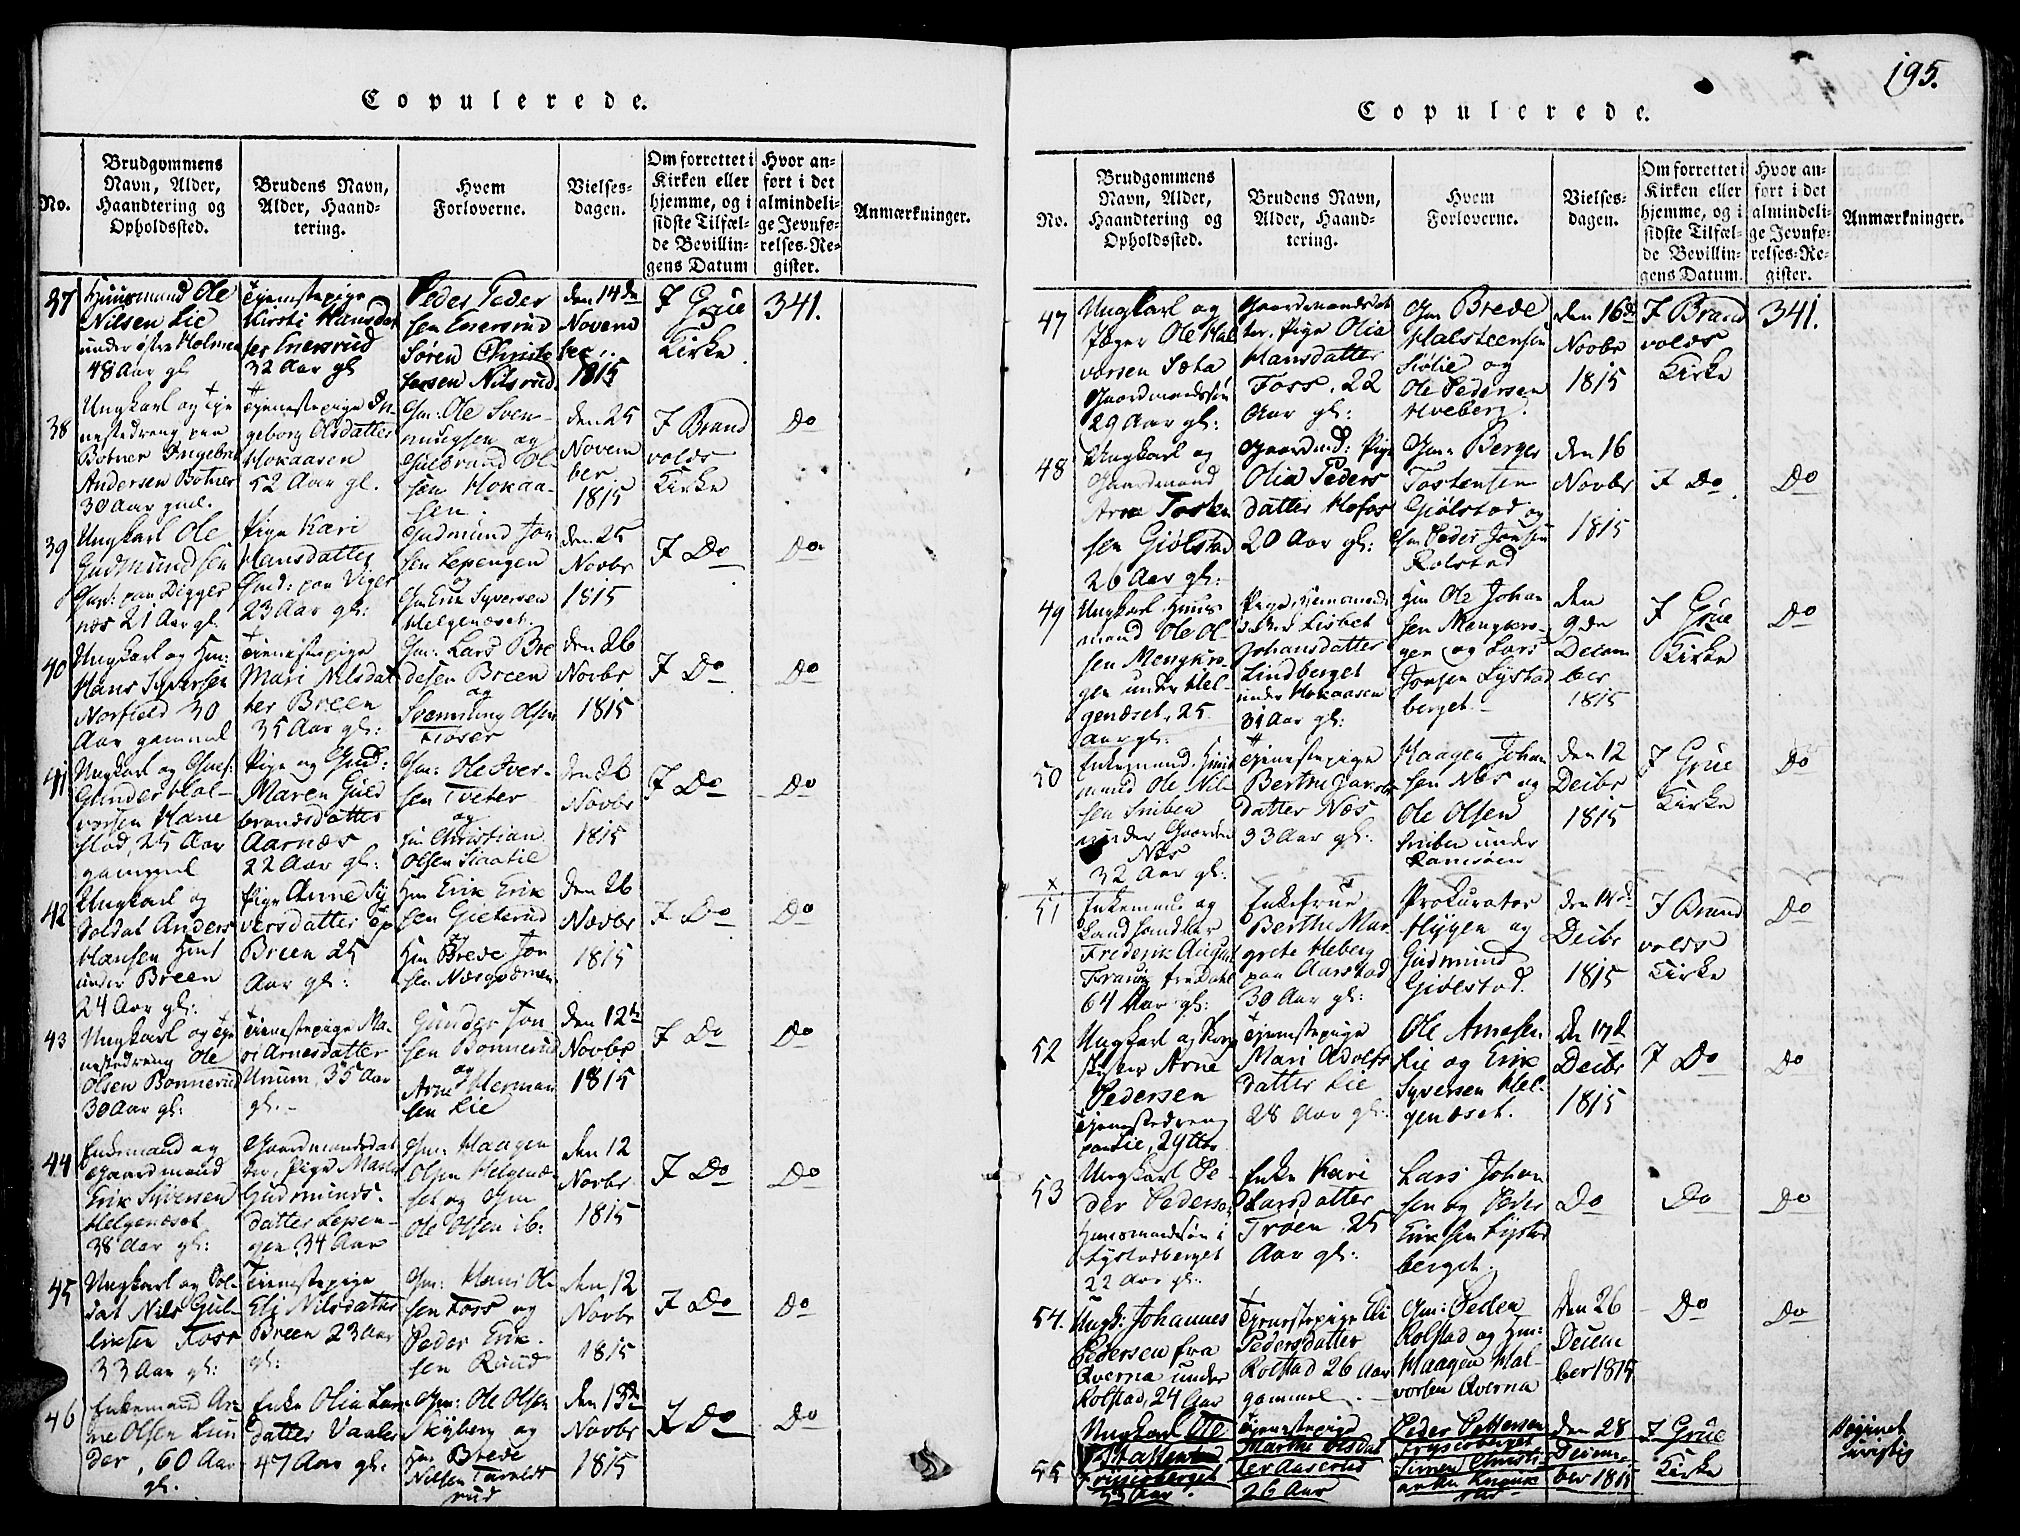 195.
Copulerede.
No.
Brudgommens
Navn, Alder,
Haandtering og
Opholdssted.
Brudens Navn,
Alder, Haand-
tering.
Hvem
Forloverne.
Vielses-
dagen.
Om forrettet i
Kirken eller
hjemme, og i
sidste Tilfæl-
de Bevillin-
gens Datum
Hvor an-
ført i det
almindeli-
ge Jevnfø-
relses-Re-
gister.
Anmærkninger.
37
Huusmand Ole
Nilsen Lie
under østre Holmen
48 Aar gl
Tjenestepige
Kirsti Hansdat
ter
32 Aar gl
Peder Peder
sen
Søren Christo
fersen Nilsrud
den 14de
Novem
ber
1815
I Grue
Kirke
341.
38
Ungkarl og Tje
nestedreng paa
Botner Ingebret
Andersen Botner
30 Aar gaml.
Tjenestepige In-
geborg Olsdatter
Hokaasen
52 Aar gl.
Gm: Ole Sven-
nungsen og
Gulbrand Ol-
sen Hokaa-
sen.
den 25
Novem
ber
1815
I Brand
volds
Kirke
Do
39
Ungkarl Ole
Gudmundsen
paa Digger
næs 21 Aar gl.
Pige Kari
Hansdatter
paa Viger
23 Aar gl:
Gudmund Jon
sen Lepengen
og
Gm Erik Syversen
Helgenæset.
den 25
Novbr
1815
I Do
Do
40
Ungkarl og Hm:
Hans Syversen
Norfield 30
Aar gammel
Tjenestepige
Mari Nilsdat
ter Breen
35 Aar gl:
Gm: Lars Bre
desen Breen
og
Svennung Olsen
Floser
den 26
Novbr
1815
I Do
Do
41
Ungkarl og
Gunder Hal-
vorsen Hane
stad, 25 Aar
gammel
Pige og
Maren Guld
brandsdatter
Aarnæs
22 Aar gl:
Gm: Ole Iver-
sen Tveter
og
Gm Christian
Olsen
den 26
Novbr
1815
I Do
Do
42
Ungkarl og
Soldat Anders
Hansen Hm:
under Breen
24 Aar gl:
Pige Anne Sy
versdatter
Breen 25
Aar gl:
Hm Erik Erik
sen Gieterud
Hm Brede Jon
sen
den 26
Novbr
1815
I Do
Do
43
Ungkarl og Tje
nestedreng Ole
Olsen Bonnerud
30 Aar gl:
Tjenestepige Ma-
ri Arnesdatter
Unum, 35 Aar
gl.
Gunder Jon
sen Bonnerud
og
Arne Herman
sen Lie
den 12te
Novbr
1815
I Do
Do
44
Enkemand og
Gaardmand
Erik Syversen
Helgenæset
38 Aar gl:
Gaardmandsdat
ter, Pige Maren
Gudmunds-
datter Lepen-
gen 34 Aar
Gm: Haagen
Olsen Helgenæ-
set og Gm
Ole Olsen ib:
den 12
Novbr
1815
I Do
Do
45
Ungkarl og Sol-
dat Nils Gul-
liksen Foss
33 Aar gl:
Tjenestepige
Eli Nilsdatter
Breen 23 Aar
gl:
Gm: Hans Ol-
sen Foss og
Peder Erik-
sen Ruud
den 12
Novbr
1815
I Do
Do
46
Enkemand Ar-
ne Olsen Lun
der, 60 Aar
gl.
Enke Olia Lars
datter Vaaler
47 Aar gl:
Gm: Ole Olsen
Skyberg og
Hm Brede
Nilsen Taralds
rud
den 13de
Novbr
1815
I Do
Do
Copulerede.
No.
Brudgommens
Navn, Alder,
Haandtering og
Opholdssted.
Brudens Navn,
Alder, Haand-
tering.
Hvem
Forloverne.
Vielses-
dagen.
Om forrettet i
Kirken eller
hjemme, og i
sidste Tilfæl-
de Bevillin-
gens Datum.
Hvor an-
ført i det
almindeli-
ge Jevnfø-
relses-Re-
gister.
Anmærkninger.
47
Ungkarl og
Jæger Ole Hal
vorsen Sæta
Gaardmandssøn
29 Aar gl:
Gaardmandsdat
ter, Pige Olia
Hansdatter
Foss. 22
Aar gl:
Gm Brede
Halsteensen
Siølie og
Ole Pedersen
Hveberg.
den 16de
Novbr
1815
I Brand
volds
Kirke
341.
48
Ungkarl og
Gaardmand
Arne Tosten
sen Giølstad
26 Aar gl:
Gaardmd: Pige
Olia Peders
datter Hofos
20 Aar gl:
Gm: Berger
Tostensen
Giølstad og
Gm Peder Jonsen
Rolstad
den 16
Novbr
1815
I Do
Do
49
Ungkarl Huus
mand Ole Ol-
sen Mengkro-
gen under Hel-
genæset, 25
Aar gl:
Pige, Huusmands
Lisbet
Johansdatter
Lindberget
under Hokaasen
31 Aar gl:
Hm Ole Johan
sen Mengkro-
gen og Lars
Jonsen Lystad
berget.
den
9de
Decem
ber
1815
I Grue
Kirke
Do
50
Enkemand, Huus
mand Ole Nil-
sen Sniben
under Gaarden
Næs
32 Aar gl:
Tjenestepige
Berthe Jacobs
datter Næs
33 Aar gl:
Haagen Johan
sen Næs og
Ole Olsen
Sniben under
Ramsøen
den 12
Decbr
1815
I Grue
Kirke
Do
51
Enkemand og
Landhandler
Frederik August
64 Aar gl:
Enkefrue
Berthe Mar
grete Heberg
paa Aarstad
30 Aar gl:
Prokurator
Hygen og
Gudmund
Giølstad.
den 14de
Decbr
1815
I Brand
volds
Kirke
Do
52
Ungkarl og
Arne
Pedersen
Tjenestedreng
paa Lie, 29 Aar
Tjenestepige
Mari Adolfs
datter Lie
28 Aar gl:
Ole Arnesen
Lie og Erik
Syversen Hel-
genæset.
De 17de
Decbr
1815
I Do
Do
53
Ungkarl Pe-
der Pedersen
Huusmandssøn i
Lystadberget
22 Aar gl:
Enke Kari
Larsdatter
Trøen 25
Aar gl:
Lars Johan
sen og Peder
Eriksen Lystad
berget.
Do
Do
Do
54.
Ungk: Johannes
Pedersen fra
Qverna under
Rolstad, 24 Aar
Tjenestepige Eli
Pedersdatter
Rolstad 26 Aar
gammel
Gm: Peder
Rolstad og Hm:
Haagen Hal-
vorsen Qverna
Den 26
Decem
ber 1815
Do
Do
55
Ungkarl Ole
Frysjerberget
33 Aar.
Tjenestepige
Marthe Olsdat
ter Aaserud
26 Aar
Peder Pettersen
Frysjerberget
Simen Christi-
ansen
den 28
Decem
ber 1815
I Grue
Kirke